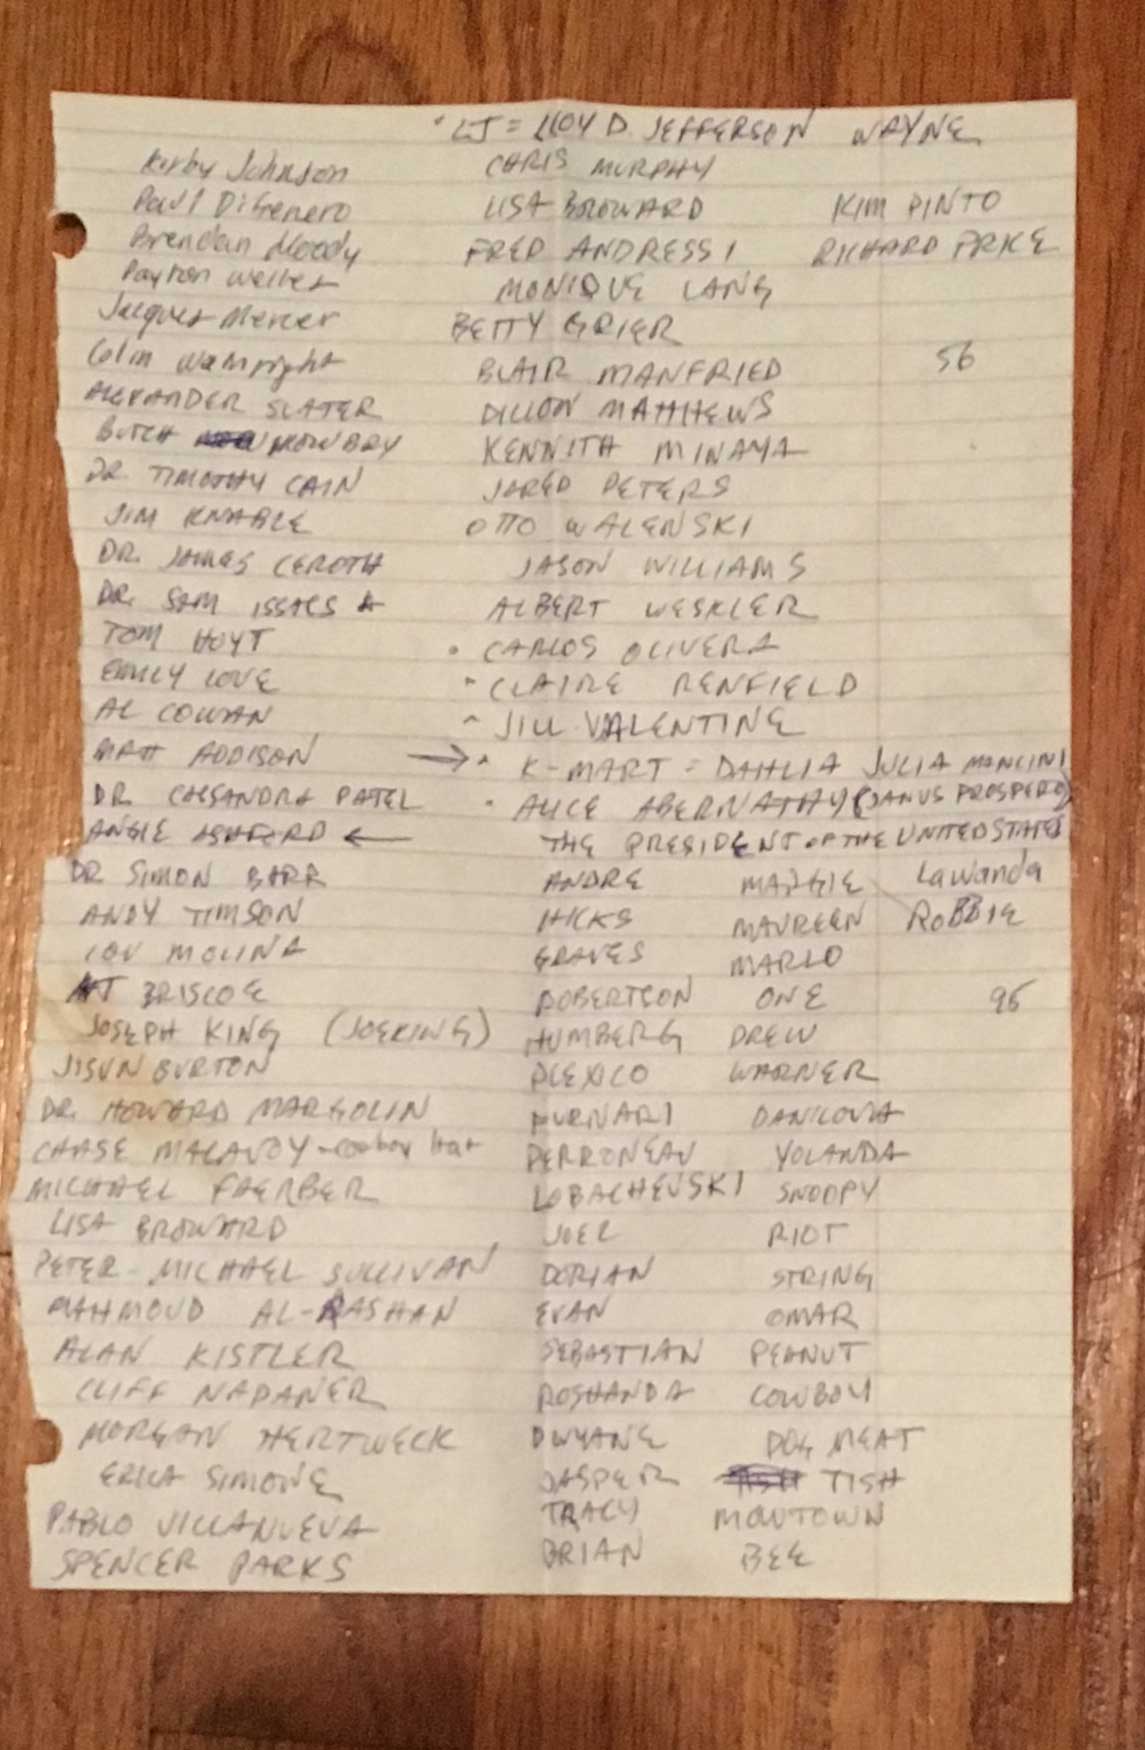 • LJ = LLOYD JEFFERSON WAYNE
Kirby Johnson CHRIS MURPHY
Paul DiGenero LISA BROWARD KIM PINTO
Brendan Moody FRED ANDRESSI RICHARD PRICE
Payton Welles MONIQUE LANG
Jacques Mercer BETTY GRIER
Colin Wainright BLAIR MANFRIED 56
ALEXANDER SLATER DILLON MATTHEWS
BUTCH MOWBRY KENNITH MINAYA
DR. TIMOTHY CAIN JARED PETERS
JIM KNABLE OTTO WALENSKI
DR. JAMES CEROTH JASON WILLIAMS
DR. SAM ISSACS ALBERT WESKLER
TOM HOYT • CARLOS OLIVERA
EMILY LOVE • CLAIRE RENFIELD
AL COWAN • JILL VALENTINE
MATT ADDISON → • K-MART = DAHLIA JULIA MANCINI
DR. CASSANDRA PATEL • ALICE ABERNATHY (JANUS PROSPERO)
ANGIE ASHFORD ← THE PRESIDENT OF THE UNITED STATES
DR SIMON BARR ANDRE MARGIE LaWanda
ANDY TIMSON HICKS MAUREEN ROBBIE
LOU MOLINA GRAVES MARLO
AJ BRISCOE ROBERTSON ONE 95
JOSEPH KING (JOEKING) HUMBERG DREW
JISUN BURTON PLEXICO WARNER
DR. HOWARD MARGOLIN FURNARI DANILOVA
CHASE MACAVOY - cowboy hat PERRONEAU YOLANDA
MICHAEL FAERBER LOBACHEVSKI SNOOPY
LISA BROWARD JOEL RIOT
PETER-MICHAEL SULLIVAN DORIAN STRING
MAHMOUD AL-RASHAN EVAN OMAR
ALAN KISTLER SEBASTIAN PEANUT
CLIFF NAPANER ROSHANDA COWBOY
MORGAN HERTWECK DWYANE DOG MEAT
ERICA SIMONE JASPER TISH
PABLO VILLANUEVA TRACY MOWTOWN
SPENCER PARKS BRIAN BEE